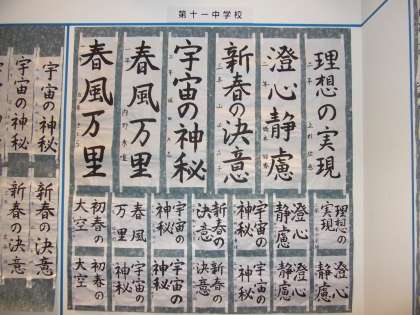 第十一中学校
理想の実現
澄心静慮
新春の決意
宇宙の神秘
春風万里
春風万里
理想の
実現
澄心
静慮
宇宙の
神秘
新春の
決意
宇宙の
神秘
春風
万里
初春の
大空
澄心
静慮
澄心
静慮
宇宙の
神秘
新春の
決意
宇宙の
神秘
宇宙の
神秘
初春の
大空
宇宙の神秘
宇宙の神秘
新春の決意
新春の決意